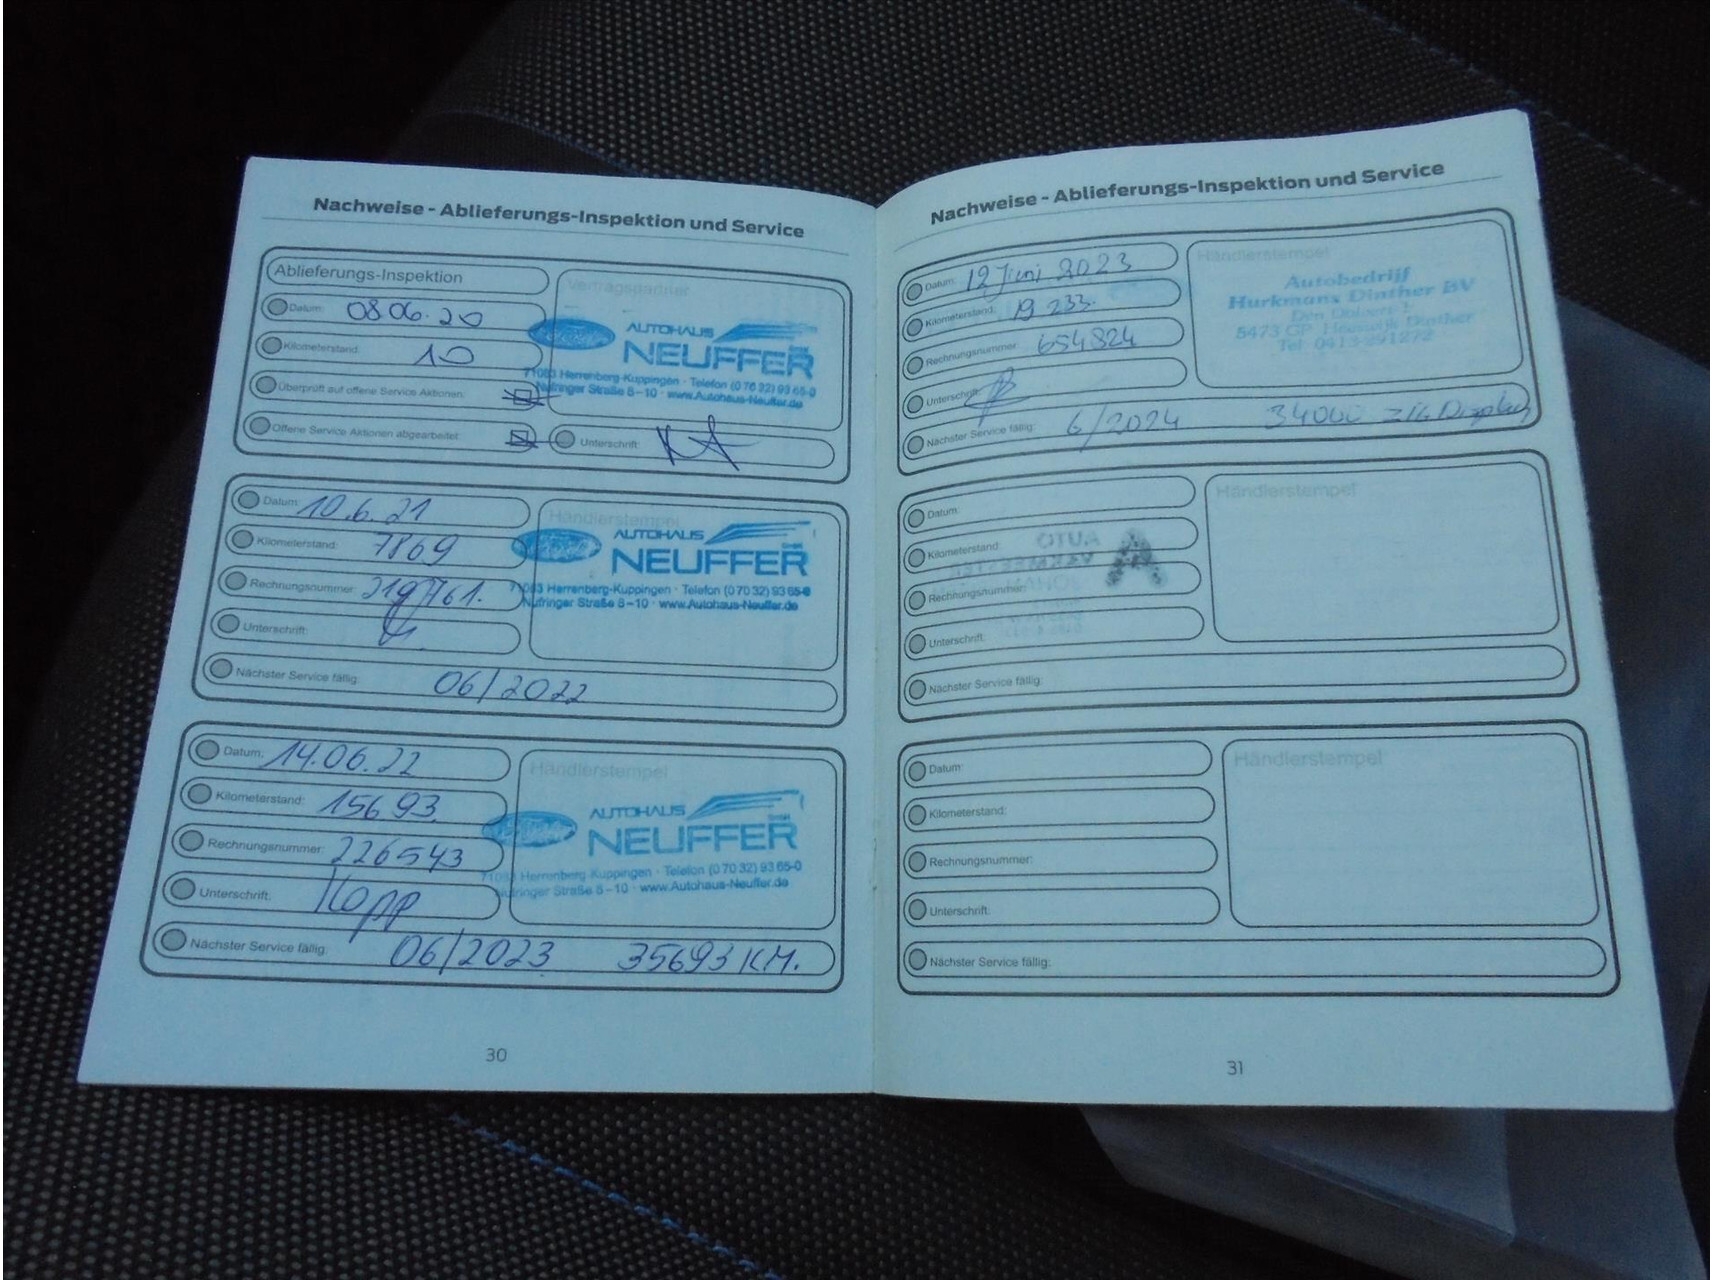 Nachweise - Ablieferungs-Inspektion und Service
Ablieferungs-Inspektion
Datum: 08.06.20
Kilometerstand: 10
Überprüft auf offene Service Aktionen:
Offene Service Aktionen abgearbeitet:
Vertragspartner
AUTOHAUS
NEUFFER
GmbH
71083 Herrenberg-Kuppingen · Telefon (0 70 32) 93 65-0
Nufringer Straße 8-10 · www.Autohaus-Neuffer.de
Unterschrift:
Datum: 10.6.21
Kilometerstand: 7869
Rechnungsnummer: 219761.
Unterschrift:
Nächster Service fällig: 06/2022
Händlerstempel
AUTOHAUS
NEUFFER
GmbH
71083 Herrenberg-Kuppingen · Telefon (0 70 32) 93 65-0
Nufringer Straße 8-10 · www.Autohaus-Neuffer.de
Datum: 14.06.22
Kilometerstand: 15693
Rechnungsnummer: 226543
Unterschrift: Kopp
Nächster Service fällig: 06/2023 35693 KM.
Händlerstempel
AUTOHAUS
NEUFFER
GmbH
71083 Herrenberg-Kuppingen · Telefon (0 70 32) 93 65-0
Nufringer Straße 8-10 · www.Autohaus-Neuffer.de
30
Nachweise - Ablieferungs-Inspektion und Service
Datum: 12 Juni 2023
Kilometerstand: 19 233.
Rechnungsnummer: 654824
Unterschrift:
Nächster Service fällig: 6/2024 34000
Händlerstempel
Autobedrijf
Hurkmans Dinther BV
5473 Heeswijk Dinther
Tel. 0413-291272
Datum:
Kilometerstand:
Rechnungsnummer:
Unterschrift:
Nächster Service fällig:
Händlerstempel
AUTO
Datum:
Kilometerstand:
Rechnungsnummer:
Unterschrift:
Nächster Service fällig:
Händlerstempel
31